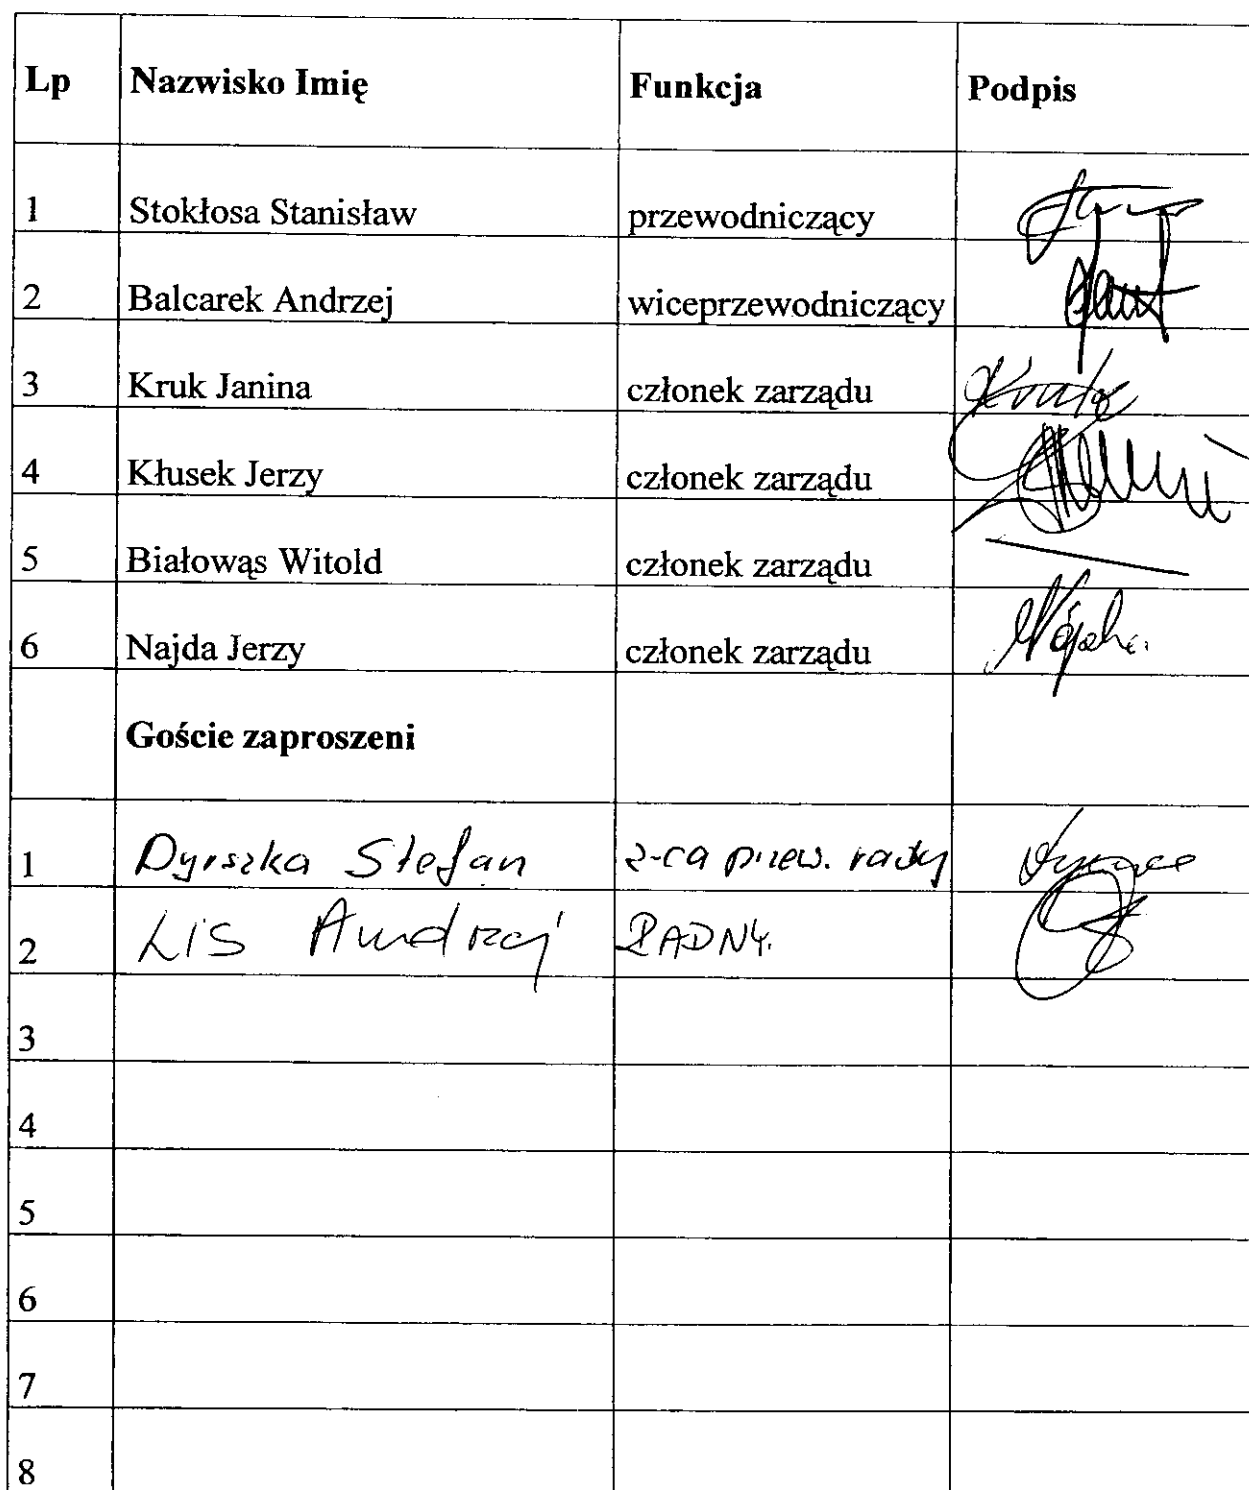 Lp Nazwisko Imię Funkcja Podpis
1 Stokłosa Stanisław przewodniczący
2 Balcarek Andrzej wiceprzewodniczący
3 Kruk Janina członek zarządu
4 Kłusek Jerzy członek zarządu
5 Białowąs Witold członek zarządu
6 Najda Jerzy członek zarządu
Goście zaproszeni
1 Dyrszka Stefan z-ca przew. rady
2 LIS Andrzej RADNY.
3
4
5
6
7
8